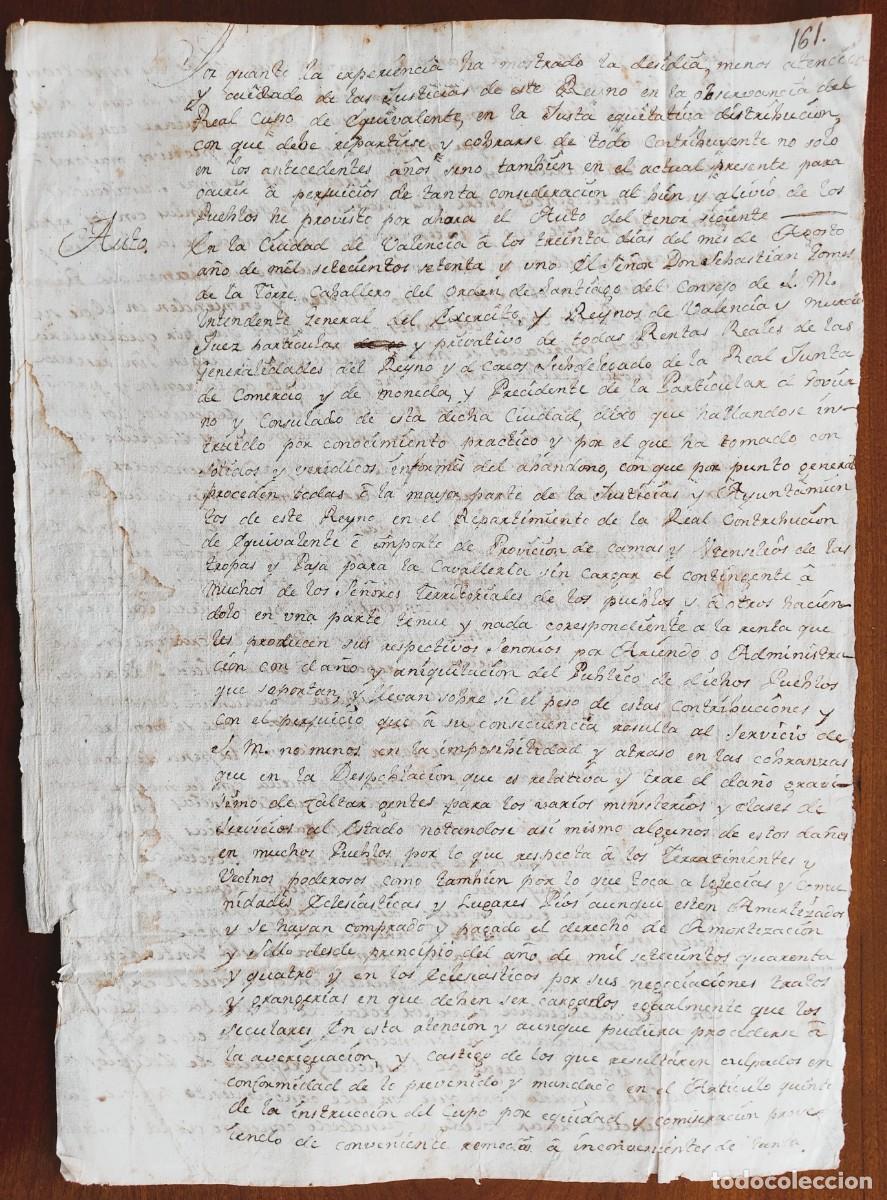 161.
Por quanto la experiencia ha mostrado la desidia, menos atencion
y cuidado de las Justicias de este Reyno en la observancia del
Real Cupo de Equivalente, en la Justa equitativa distribucion,
con que debe repartirse, y cobrarse de todo Contribuyente no solo
en los antecedentes años sino tambien en el actual presente para
ocurir à perjuicios de tanta consideracion al bien y alivio de los
Pueblos he provisto por ahora el Auto del tenor siguiente
Auto.
En la Ciudad de Valencia à los treinta dias del mes de Agosto
año de mil setecientos setenta y uno El Señor Don Sebastian Gomes
de la Torre Caballero del Orden de Santiago del Consejo de S. M.
Intendente General del Exercito, y Reynos de Valencia y Murcia
Juez particular y privativo de todas Rentas Reales de las
Generalidades del Reyno y Subdelegado de la Real Junta
de Comercio y de moneda, y Precidente de la Particular d Govier
no y Consulado de esta dicha Ciudad, dixo que hallandose ins-
truido por conocimiento practico y por el que ha tomado con
solidos y veridicos informes del abandono, con que por punto general
proceden todas ò la mayor parte de la Justicias y Ayuntamien
tos de este Reyno en el Repartimiento de la Real Contribucion
de Equivalente è importe de Provicion de camas y Utensilios de las
tropas y Paja para la Cavalleria sin cargar el contingente à
Muchos de los Señores Territoriales de los pueblos y à otros hacien-
dolo en una parte tenue y nada correspondiente à la renta que
les producen sus respectivos Señorios por Ariendo o Administra-
cion con daño y aniquilacion del Publico de dichos Pueblos
que soportan, y llevan sobre si el peso de estas Contribuciones y
con el perjuicio que à su consecuencia resulta al Servicio de
S. M. no menos en la imposibilidad y atraso en las cobranzas
que en la Despoblacion que es relativa y trae el daño gravi-
simo de faltar gentes para los varios ministerios y clases de
Servicios al Estado notandose asi mismo algunos de estos daños
en muchos Pueblos por lo que respecta à los Terratenientes y
Vecinos poderosos como tambien por lo que toca a Iglecias y comu
nidades Eclesiasticas y Lugares Pios aunque esten Amortizados
y se hayan comprado y pagado el derecho de Amortizacion
y Sello desde principio del año de mil setecientos quarenta
y quatro y en los Eclesiasticos por sus negociaciones tratos
y grangerias en que deben ser cargados igualmente que los
seculares. En esta atencion y aunque pudiera procederse à
la averiguacion, y castigo de los que resultaren culpados en
conformidad de lo prevenido y mandado en el Articulo quinto
de la instruccion del Cupo por equidad y comiseracion
de conveniente remedio à inconvenientes de tanta.
todocoleccion